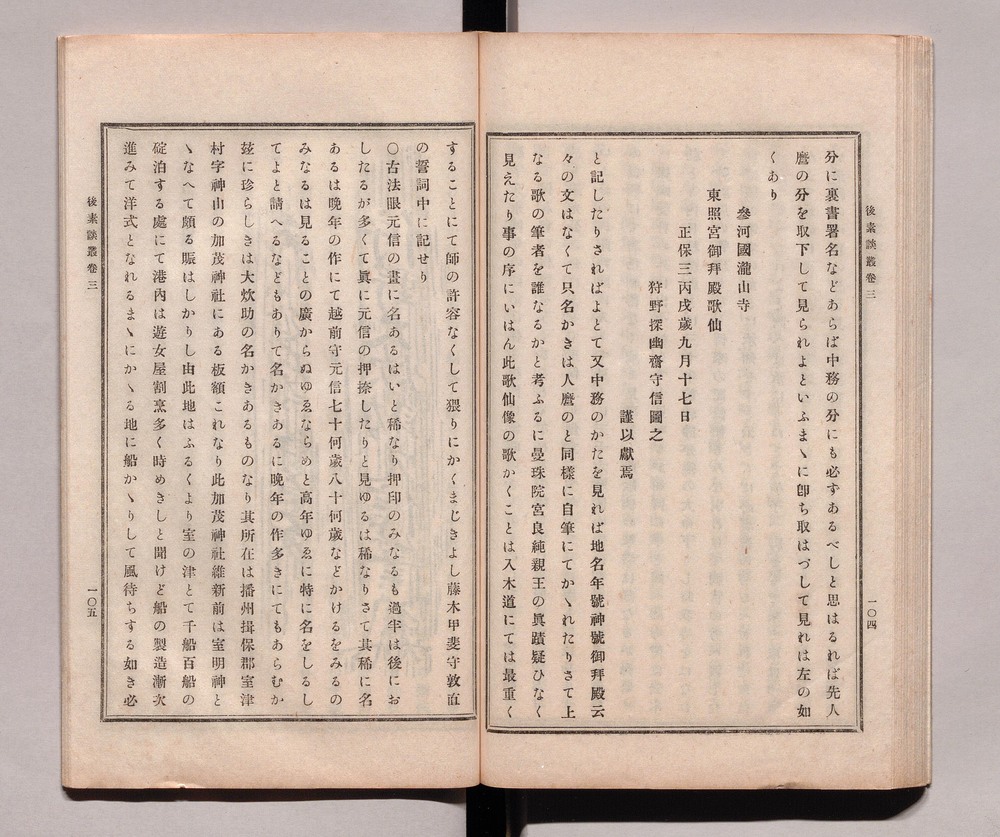 後素談叢卷三
一〇四
分に裏書署名などあらば中務の分にも必ずあるべしと思はるれば先人
麿の分を取下して見られよといふまゝに卽ち取はづして見れは左の如
くあり
參河國瀧山寺
東照宮御拜殿歌仙
正保三丙戌歲九月十七日
狩野探幽齋守信圖之
謹以獻焉
と記したりさればよとて又中務のかたを見れば地名年號神號御拜殿云
々の文はなくて只名かきは人麿のと同樣に自筆にてかゝれたりさて上
なる歌の筆者を誰なるかと考ふるに曼珠院宮良純親王の眞蹟疑ひなく
見えたり事の序にいはん此歌仙像の歌かくことは入木道にては最重く
することにて師の許容なくして猥りにかくまじきよし藤木甲斐守敦直
の誓詞中に記せり
〇古法眼元信の畫に名あるはいと稀なり押印のみなるも過半は後にお
したるが多くて眞に元信の押捺したりと見ゆるは稀なりさて其稀に名
あるは晩年の作にて越前守元信七十何歲八十何歲などかけるをみるの
みなるは見ることの廣からぬゆゑならめと高年ゆゑに特に名をしるし
てよと請へるなどもありて名かきあるに晩年の作多きにてもあらむか
玆に珍らしきは大炊助の名かきあるものなり其所在は播州揖保郡室津
村字神山の加茂神社にある板額これなり此加茂神社維新前は室明神と
ゝなへて頗る賑はしかりし由此地はふるくより室の津とて千船百船の
碇泊する處にて港內は遊女屋割烹多く時めきしと聞けど船の製造漸次
進みて洋式となれるまゝにかゝる地に船かゝりして風待ちする如き必
後素談叢卷三
一〇五